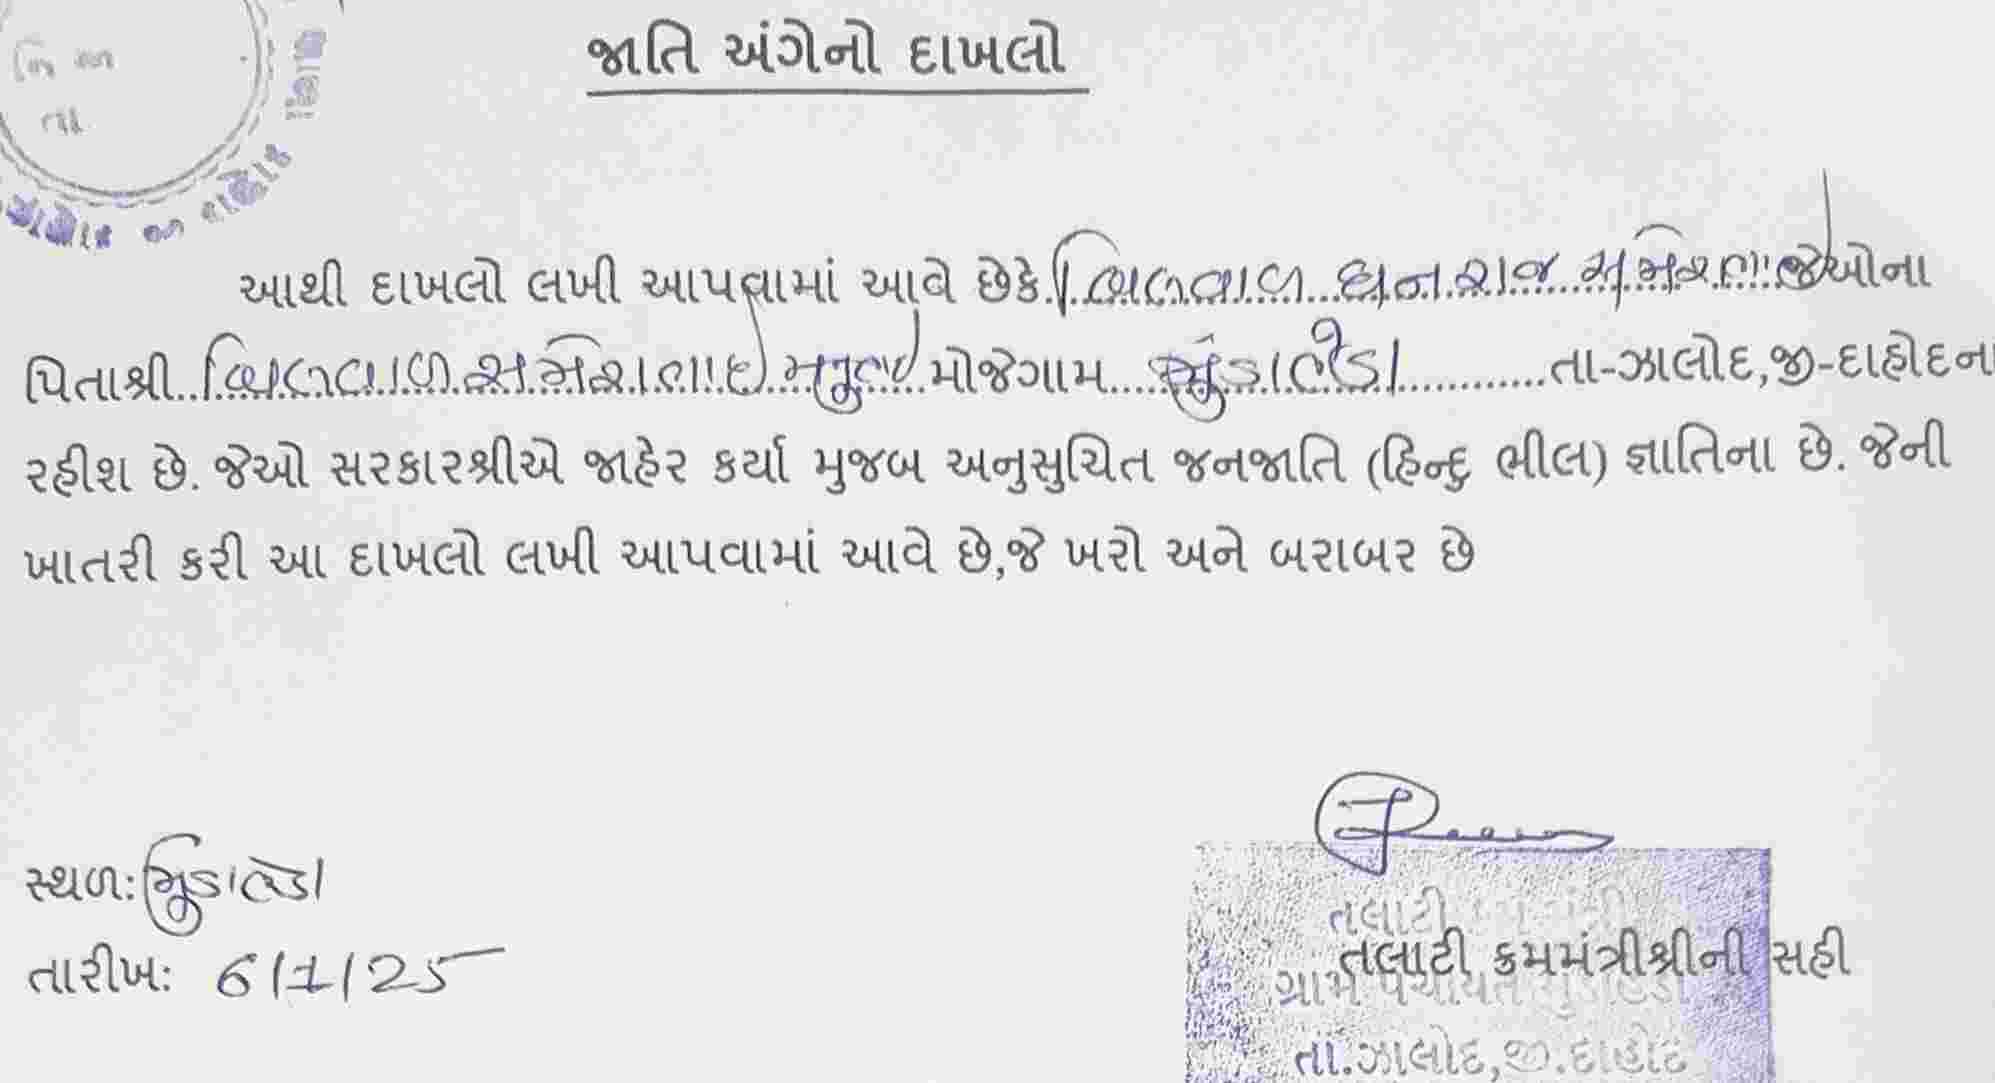 જાતિ અંગેનો દાખલો
આથી દાખલો લખી આપવામાં આવે છેકે. બિલવાળ ધનરાજ જેઓના
પિતાશ્રી..બિલવાળ મોજેગામ.....મુંડાહેડા............તા-ઝાલોદ,જી-દાહોદના
રહીશ છે. જેઓ સરકારશ્રીએ જાહેર કર્યા મુજબ અનુસુચિત જનજાતિ (હિન્દુ ભીલ) જ્ઞાતિના છે. જેની
ખાતરી કરી આ દાખલો લખી આપવામાં આવે છે,જે ખરો અને બરાબર છે
સ્થળ: મુંડાહેડા
તારીખ: 6/1/25
તલાટી
તલાટી ક્રમમંત્રીશ્રીની સહી
ગ્રામ પંચાયત
તા.ઝાલોદ,જી.દાહોદ